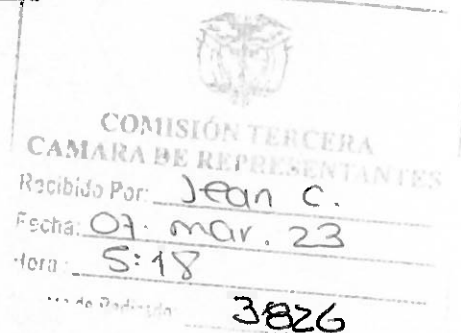 COMISIÓN TERCERA
CAMARA DE REPRESENTANTES
Recibido Por: Jean C.
Fecha: 07. mar. 23
Hora: 5:18
de Radicado 3826